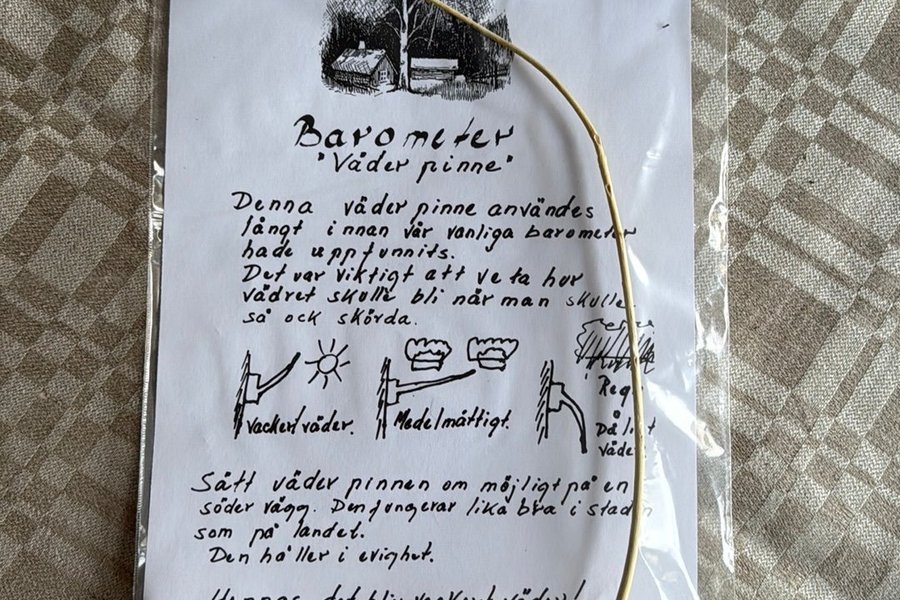 Barometer
"Väder pinne"
Denna väder pinne användes
långt innan vår vanliga barometer
hade uppfunnits.
Det var viktigt att veta hur
vädret skulle bli når man skulle
så ock skörda.
Vackert väder.
Medelmåttigt.
Reg
Dåligt
väder
Sått väder pinnen om möjligt på en
söder vågg. Den fungerar lika bra i staden
som på landet.
Den håller i evighet.
Hoppas det blir vackert väder!